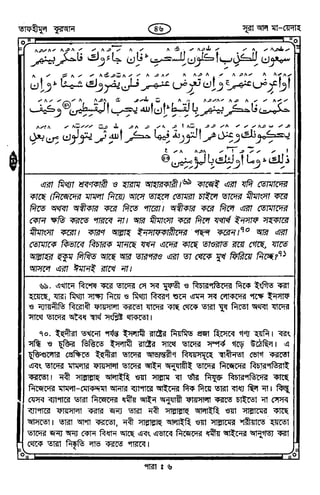 তাফহীমুল কুরআন
৪৬
সূরা আল মা-য়েদাহ
سَمّٰعُوْنَ لِلْكَذِبِ اَكّٰلُوْنَ لِلسُّحْتِ ؕ فَاِنْ جَآءُوْكَ فَاحْكُمْ بَيْنَهُمْ
اَوْ اَعْرِضْ عَنْهُمْ ۚ وَاِنْ تُعْرِضْ عَنْهُمْ فَلَنْ يَّضُرُّوْكَ شَيْـًٔا ؕ وَاِنْ
حَكَمْتَ فَاحْكُمْ بَيْنَهُمْ بِالْقِسْطِ ؕ اِنَّ اللّٰهَ يُحِبُّ الْمُقْسِطِيْنَ ۞ وَكَيْفَ
يُحَكِّمُوْنَكَ وَعِنْدَهُمُ التَّوْرٰىةُ فِيْهَا حُكْمُ اللّٰهِ ثُمَّ يَتَوَلَّوْنَ مِنْۢ بَعْدِ
ذٰلِكَ ؕ وَمَاۤ اُولٰٓئِكَ بِالْمُؤْمِنِيْنَ ۞
এরা মিথ্যা শ্রবণকারী ও হারাম আহারকারী।৬৯ কাজেই এরা যদি তোমাদের
কাছে (নিজেদের মামলা নিয়ে) আসে তাহলে তোমরা চাইলে তাদের মীমাংসা করে
দিতে অথবা অস্বীকার করে দিতে পারো। অস্বীকার করে দিলে এরা তোমাদের
কোন ক্ষতি করতে পারবে না। আর মীমাংসা করে দিলে যথার্থ ইনসাফ সহকারে
মীমাংসা করো। কারণ আল্লাহ ইনসাফকারীদের পছন্দ করেন।৭০ আর এরা
তোমাকে কিভাবে বিচারক মানছে যখন এদের কাছে তাওরাত রয়ে গেছে, যাতে
আল্লাহর হুকুম লিখিত আছে আর তারপরও এরা তা থেকে মুখ ফিরিয়ে নিচ্ছে?৭১
আসলে এরা ঈমানই রাখে না।
৬৯. এখানে বিশেষ করে তাদের সে সব মুফতী ও বিচারপতিদের দিকে ইংগিত করা
হয়েছে, যারা মিথ্যা সাক্ষ্য নিয়ে ও মিথ্যা বিবরণ শুনে এমন সব লোকদের পক্ষে ইনসাফ
ও ন্যায়নীতি বিরোধী ফায়সালা করতো যাদের কাছ থেকে তারা ঘুষ নিতো অথবা যাদের
সাথে তাদের অবৈধ স্বার্থ সংশ্লিষ্ট থাকতো।
৭০. ইহুদীরা তখনো পর্যন্ত ইসলামী রাষ্ট্রের নিয়মিত প্রজা হিসেবে গণ্য হয়নি। বরং
সন্ধি ও চুক্তির ভিত্তিতে ইসলামী রাষ্ট্রের সাথে তাদের সম্পর্ক গড়ে উঠেছিল। এ
চুক্তিগুলোর প্রেক্ষিতে ইহুদীরা তাদের আভ্যন্তরীণ বিষয়সমূহে স্বাধীনতা ভোগ করতো
এবং তাদের মামলার ফায়সালা তাদের আইন অনুযায়ী তাদের নিজেদের বিচারপতিরাই
করতো। নবী সাল্লাল্লাহু আলাইহি ওয়া সাল্লাম বা তাঁর নিযুক্ত বিচারপতিদের কাছে
নিজেদের মামলা-মোকদ্দমা আনার ব্যাপারে আইনের দিক দিয়ে তারা বাধ্য ছিল না। কিন্তু
যেসব ব্যাপারে তারা নিজেদের ধর্মীয় আইন অনুযায়ী ফায়সালা করতে চাইতো না সেসব
ব্যাপারে ফায়সালা করার জন্য তারা নবী সাল্লাল্লাহু আলাইহি ওয়া সাল্লামের কাছে
আসতো। তারা আশা করতো, নবী সাল্লাল্লাহু আলাইহি ওয়া সাল্লামের শরীয়াতে হয়তো
তাদের জন্য অন্য কোন বিধান আছে এবং এভাবে নিজেদের ধর্মীয় আইনের আনুগত্য করা
থেকে তারা নিষ্কৃতি লাভ করতে পারবে।
পারা : ৬